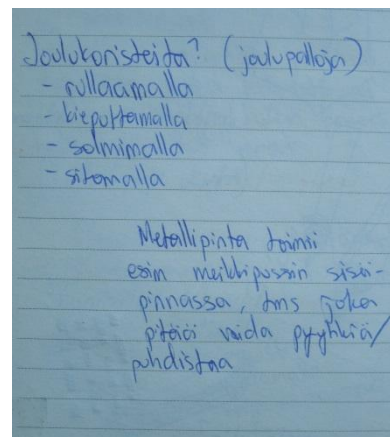 Joulukoristeita? (joulupalloja)
- rullaamalla
- kieputtamalla
- solmimalla
- sitomalla
Metallipinta toimii
esim meikkipussin sisä-
pinnassa, tms joka
pitäisi voida pyyhkiä/
puhdistaa